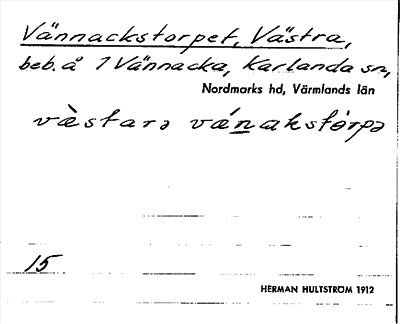 Vännackstorpet, Västra,
beb. å 1 Vännacka, Karlanda sn,
Nordmarks hd, Värmlands län
væ̀starə vánakstòrpə
15
HERMAN HULTSTRÖM 1912